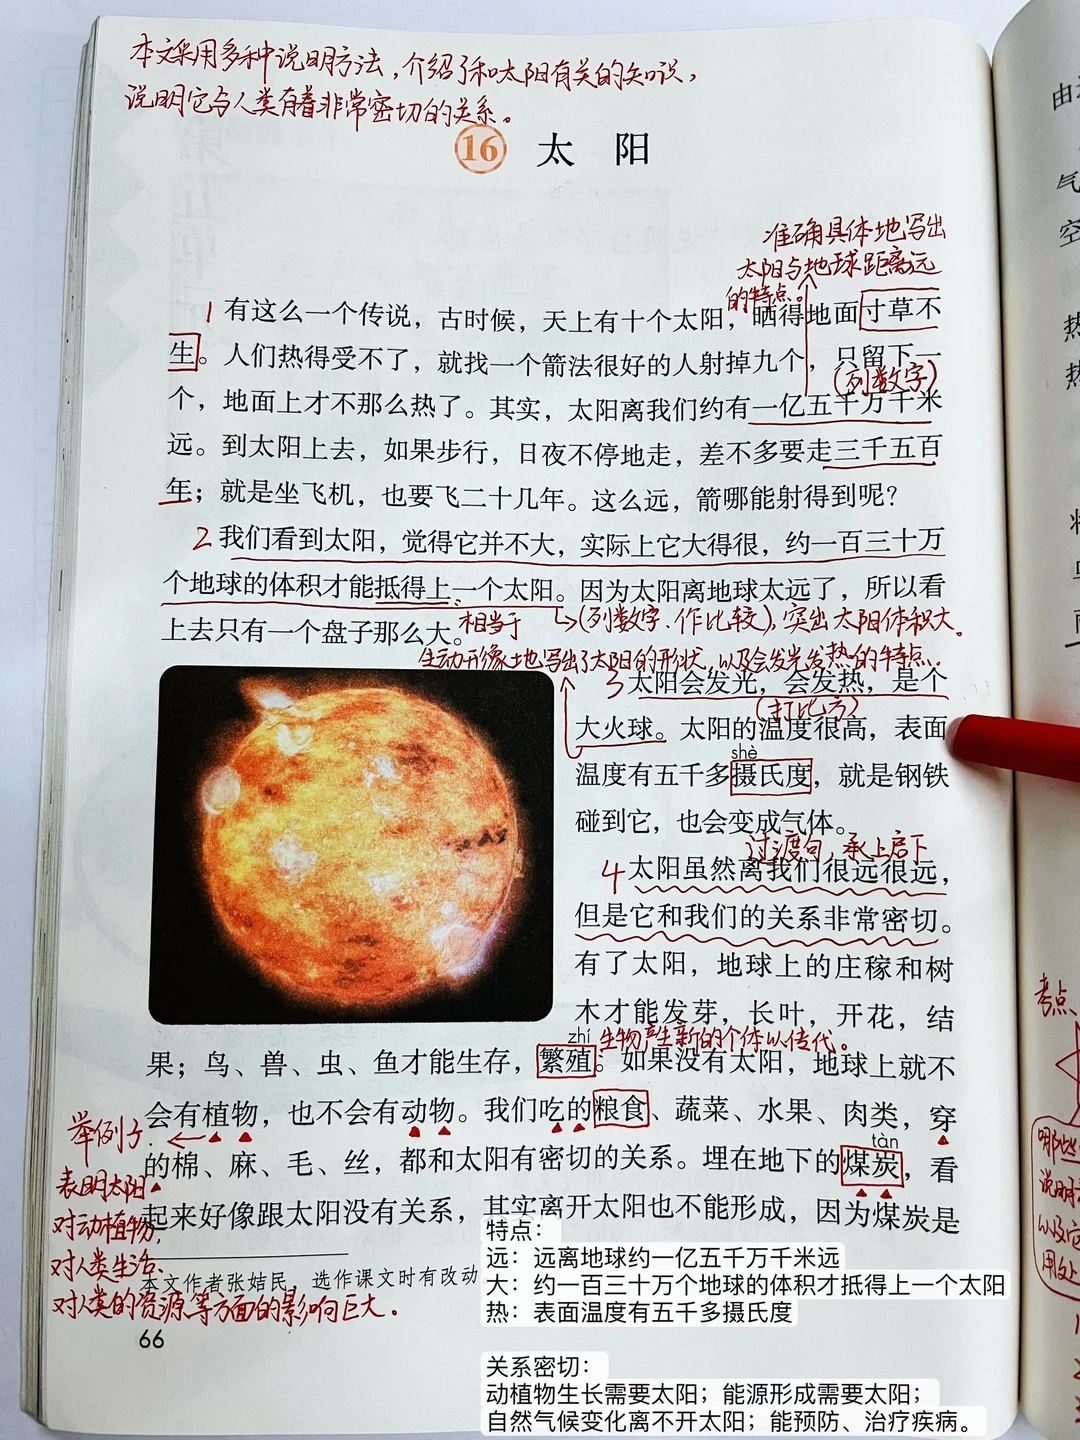 本文采用多种说明方法，介绍了和太阳有关的知识，
说明它与人类有着非常密切的关系。
16 太阳
准确具体地写出
太阳与地球距离远
的特点。
1 有这么一个传说，古时候，天上有十个太阳，晒得地面寸草不
生。人们热得受不了，就找一个箭法很好的人射掉九个，只留下一
（列数字）
个，地面上才不那么热了。其实，太阳离我们约有一亿五千万千米
远。到太阳上去，如果步行，日夜不停地走，差不多要走三千五百
年；就是坐飞机，也要飞二十几年。这么远，箭哪能射得到呢？
2 我们看到太阳，觉得它并不大，实际上它大得很，约一百三十万
个地球的体积才能抵得上一个太阳。因为太阳离地球太远了，所以看
上去只有一个盘子那么大。
相当于
（列数字、作比较），突出太阳体积大。
生动形象地写出了太阳的形状，以及会发光发热的特点。
3 太阳会发光，会发热，是个
（打比方）
大火球。太阳的温度很高，表面
shè
温度有五千多摄氏度，就是钢铁
碰到它，也会变成气体。
过渡句，承上启下
4 太阳虽然离我们很远很远，
但是它和我们的关系非常密切。
有了太阳，地球上的庄稼和树
木才能发芽，长叶，开花，结
zhí 生物产生新的个体以传代。
果；鸟、兽、虫、鱼才能生存，繁殖。如果没有太阳，地球上就不
会有植物，也不会有动物。我们吃的粮食、蔬菜、水果、肉类，穿
tàn
的棉、麻、毛、丝，都和太阳有密切的关系。埋在地下的煤炭，看
起来好像跟太阳没有关系，其实离开太阳也不能形成，因为煤炭是
举例子
表明太阳
对动植物，
对人类生活、
对人类的资源等方面的影响巨大。
本文作者张姞民，选作课文时有改动
66
特点：
远：远离地球约一亿五千万千米远
大：约一百三十万个地球的体积才抵得上一个太阳
热：表面温度有五千多摄氏度
关系密切：
动植物生长需要太阳；能源形成需要太阳；
自然气候变化离不开太阳；能预防、治疗疾病。
由
气
空
热
热
考点
哪些
说明
以及
用处